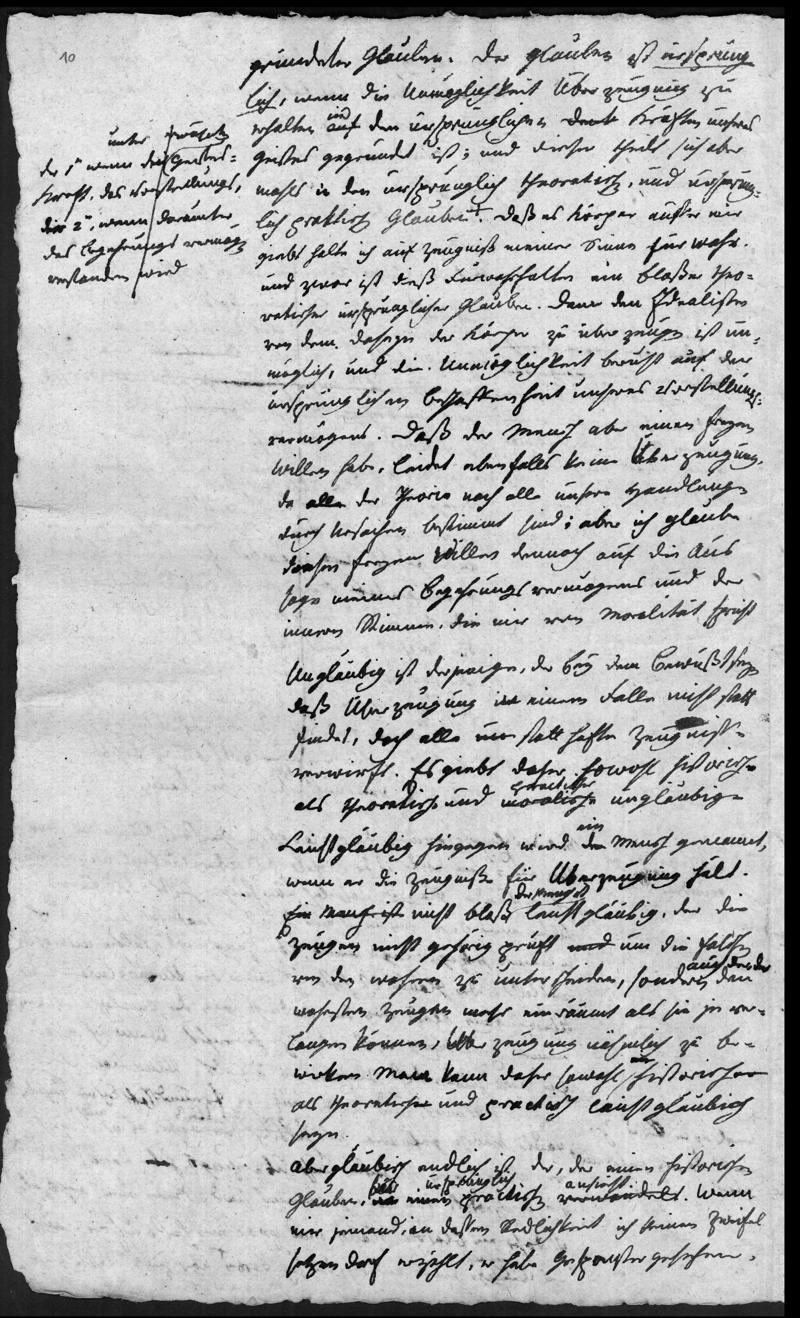 10
gründeter Glauben. Der glauben ist ursprüng
lich, wenn die Unmöglichkeit Überzeugung zu
erhalten auf den ursprünglichen Kräften unseres
Geistes gegründet ist; und dieser theilt sich aber
mahls in den ursprünglich theoretisch, und ursprün-
lich praktisch Glauben. Daß es Körper außer mir
giebt halte ich auf Zeugniß meiner Sinne für wahr.
und zwar ist dieß Fürwahrhalten ein bloßer theo-
retischer ursprünglicher Glauben. Denn den Idealisten
von dem Daseyn der Körper zu überzeugen ist un-
möglich, und die Unmöglichkeit beruht auf der
ursprünglichen Beschaffenheit unseres Vorstellungs-
vermögens. Daß der Mensch aber einen freyen
Willen habe, leidet ebenfalls keine Überzeugung,
da der Theorie nach alle unsere Handlungen
durch Ursachen bestimmt sind; aber ich glaube
diesen freyen Willen dennoch auf die Aus
sage meines Begehrungsvermögens und der
innern Stimme, die mir von Moralität spricht
unter
der 1te wenn die Geistes-
Kraft, das Vorstellungs,
die 2te, wenn darunter
das Begehrungs vermög
verstanden wird
Ungläubig ist derjenige, der bey dem Bewußtseyn
daß Überzeugung in einem Falle nicht statt
findet, doch alle statthafte Zeugniße
verwirft. Es giebt daher sowohl historisch
practische
als theoretisch und moralische ungläubige
ein
Leichtgläubig hingegen wird der Mensch genannt,
wenn er die Zeugniße für Überzeugung hält.
der Mensch
Ein Mensch ist nicht bloß leichtgläubig, der die
Zeugen nicht gehörig prüft und um die falschen
von den wahren zu unterscheiden, sondern
auch der der
wahresten Zeugen mehr einräumt als sie je ver-
langen können, Überzeugung nähmlich zu be-
wirken. Man kann daher sowohl historisch
als theoretisch und practisch leichtgläubich
seyn.
Abergläubisch endlich ist der, der einen historischen
ursprünglich
Glauben, in einen practisch verwandelt. Wenn
mir jemand, an dessen Redlichkeit ich keinen Zweifel
setzen darf erzählt, er habe Gespenster gesehen,